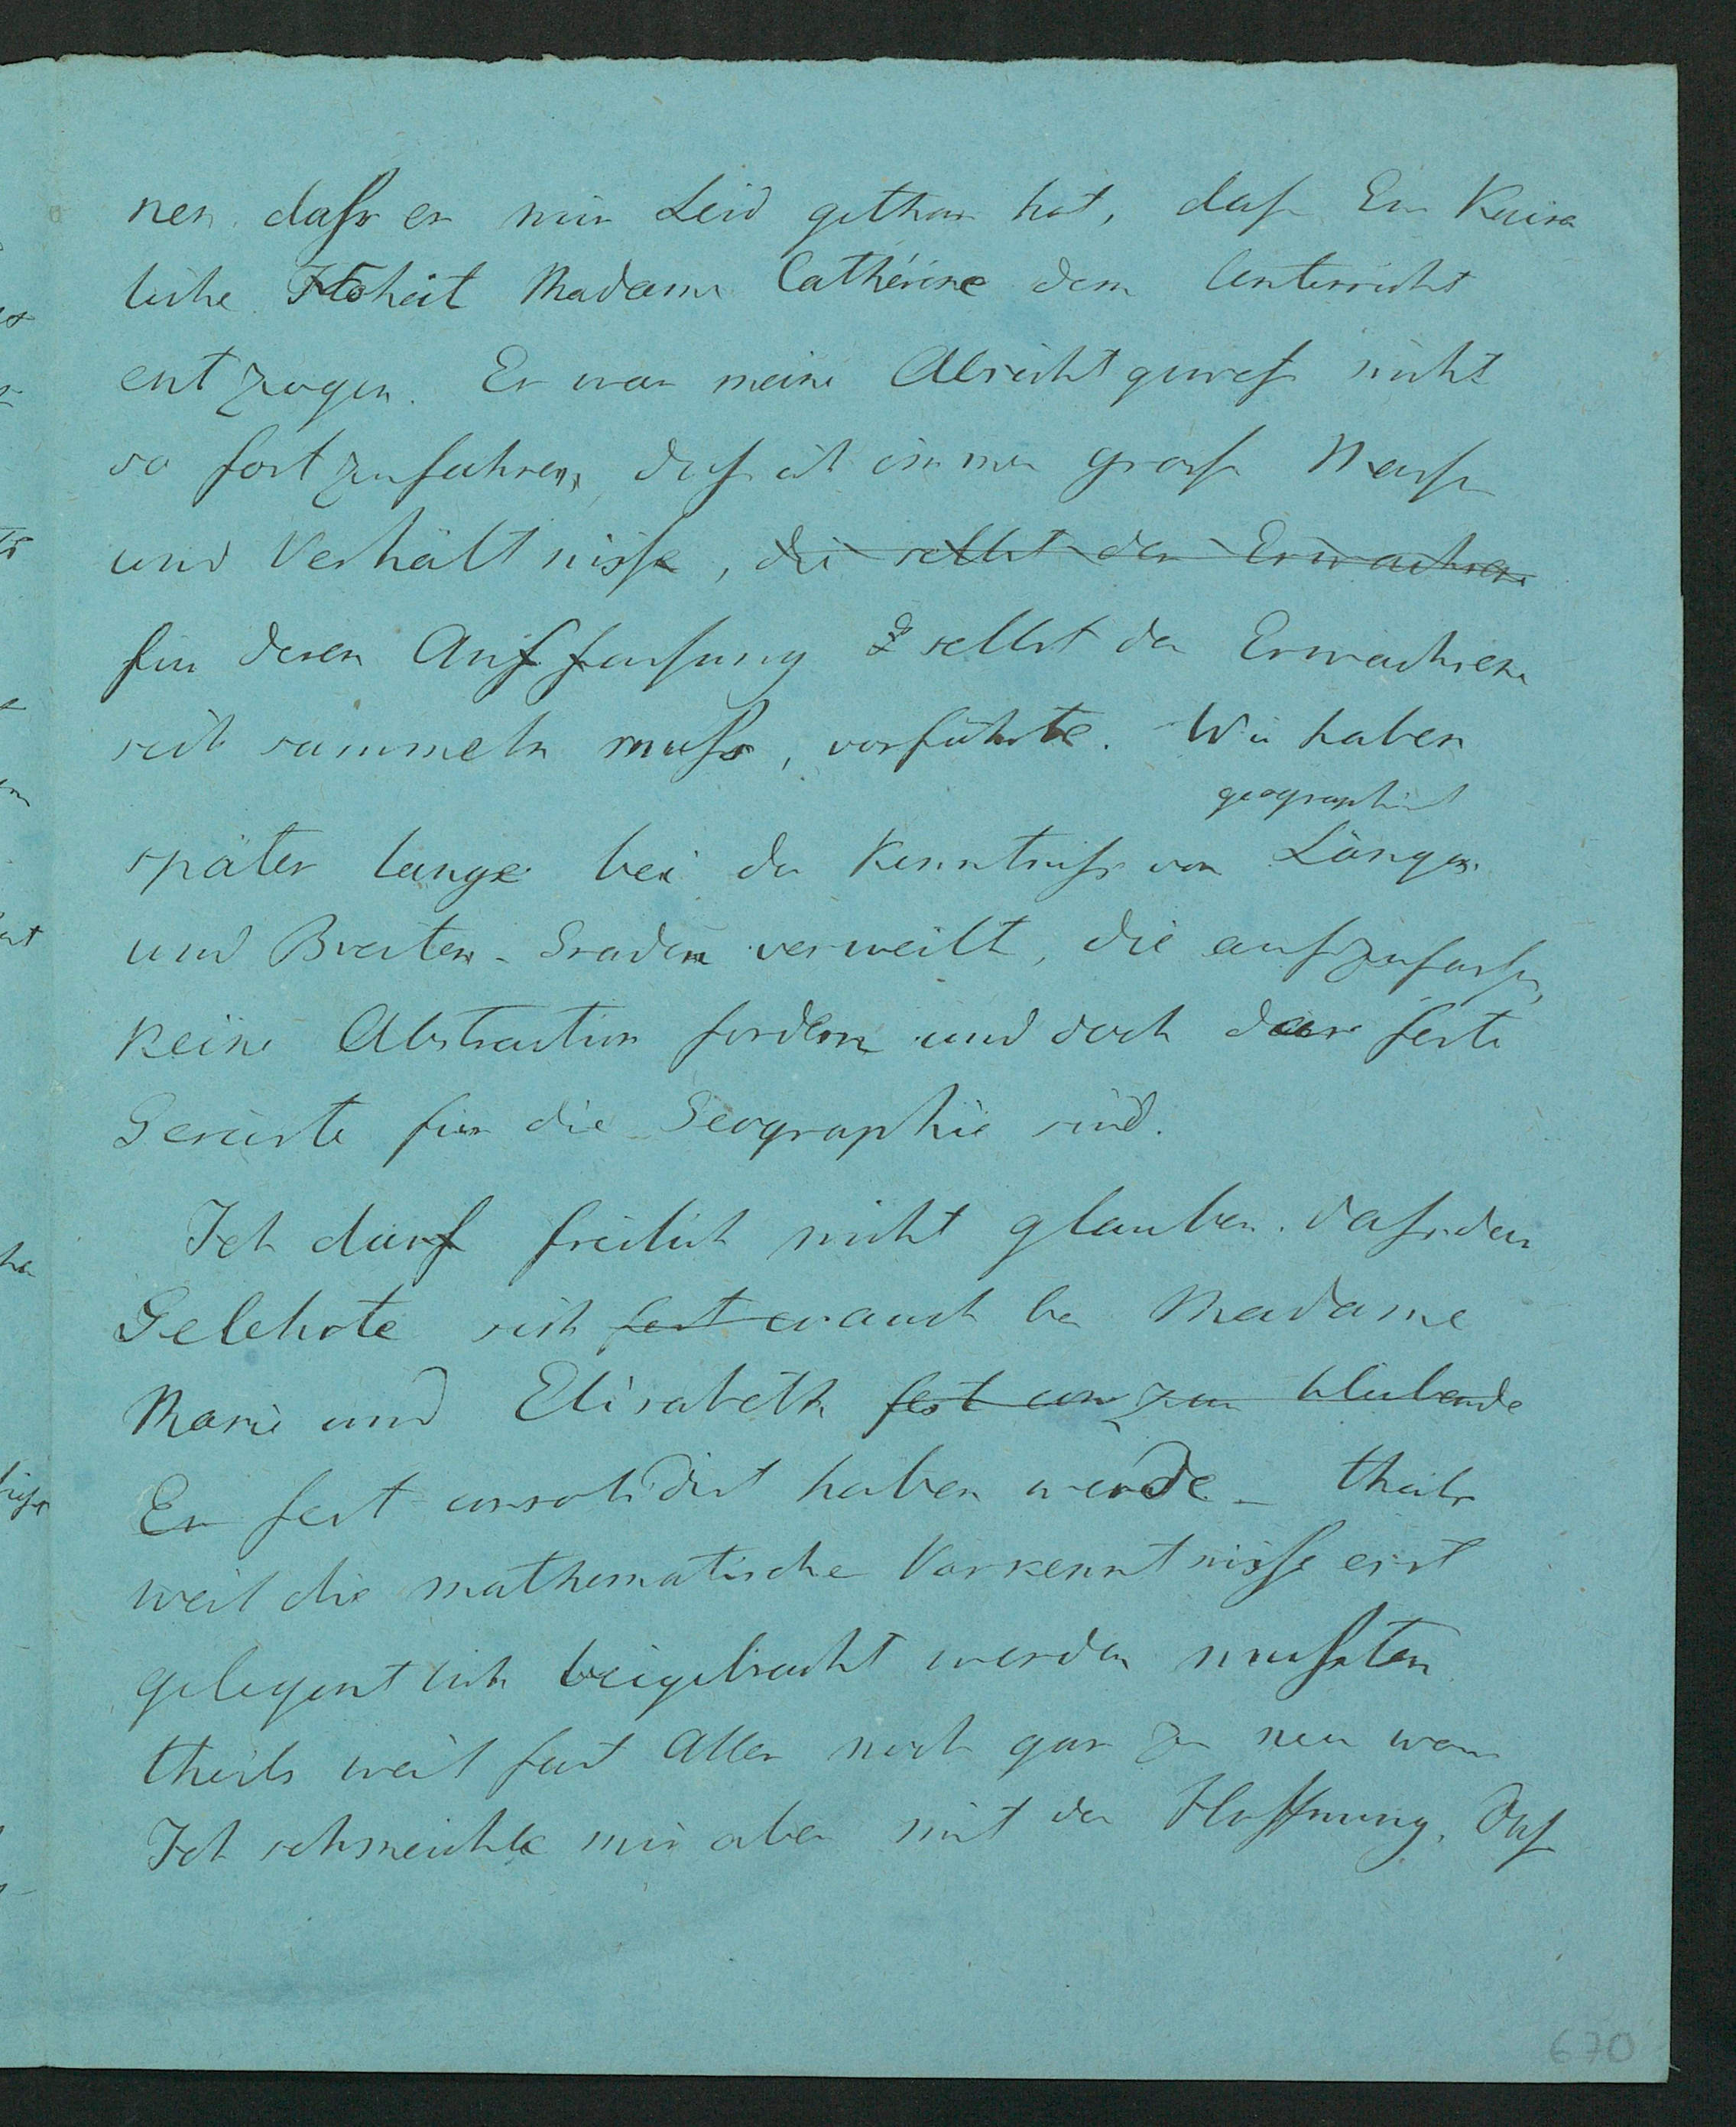 nen, dass es mir Leid gethan hat, dass Eu Kaiser
liche Hoheit Madame Cathérine dem Unterricht
entzogen. Es war meine Absicht gewiss nicht
so fortzufahren, dass ich immer grosse Masse
und Verhältnisse, die selbst der Erwachsene
für deren Auffassung selbst der Erwachsene
sich sammeln muss, vorführte. Wir haben
geographisch
später lange bei der Kenntniss von Längen
und Breiten-Graden verweilt, die aufzufassen,
keine Abstraction fordern und doch das feste
Gerüste für die Geographie sind.
Ich darf freilich nicht glauben, dass das
Gelehrte sich fest es auch bei Madame
Marie und Elisabeth fest um zu bleibende
Er fest consolidirt haben werde – theils
weil die mathematische Vorkenntnisse erst
gelegentlich beigebracht werden mussten
theils weil fast Alles noch gar zu neu war
Ich schmeichle mir aber mit der Hoffnung, dass
670